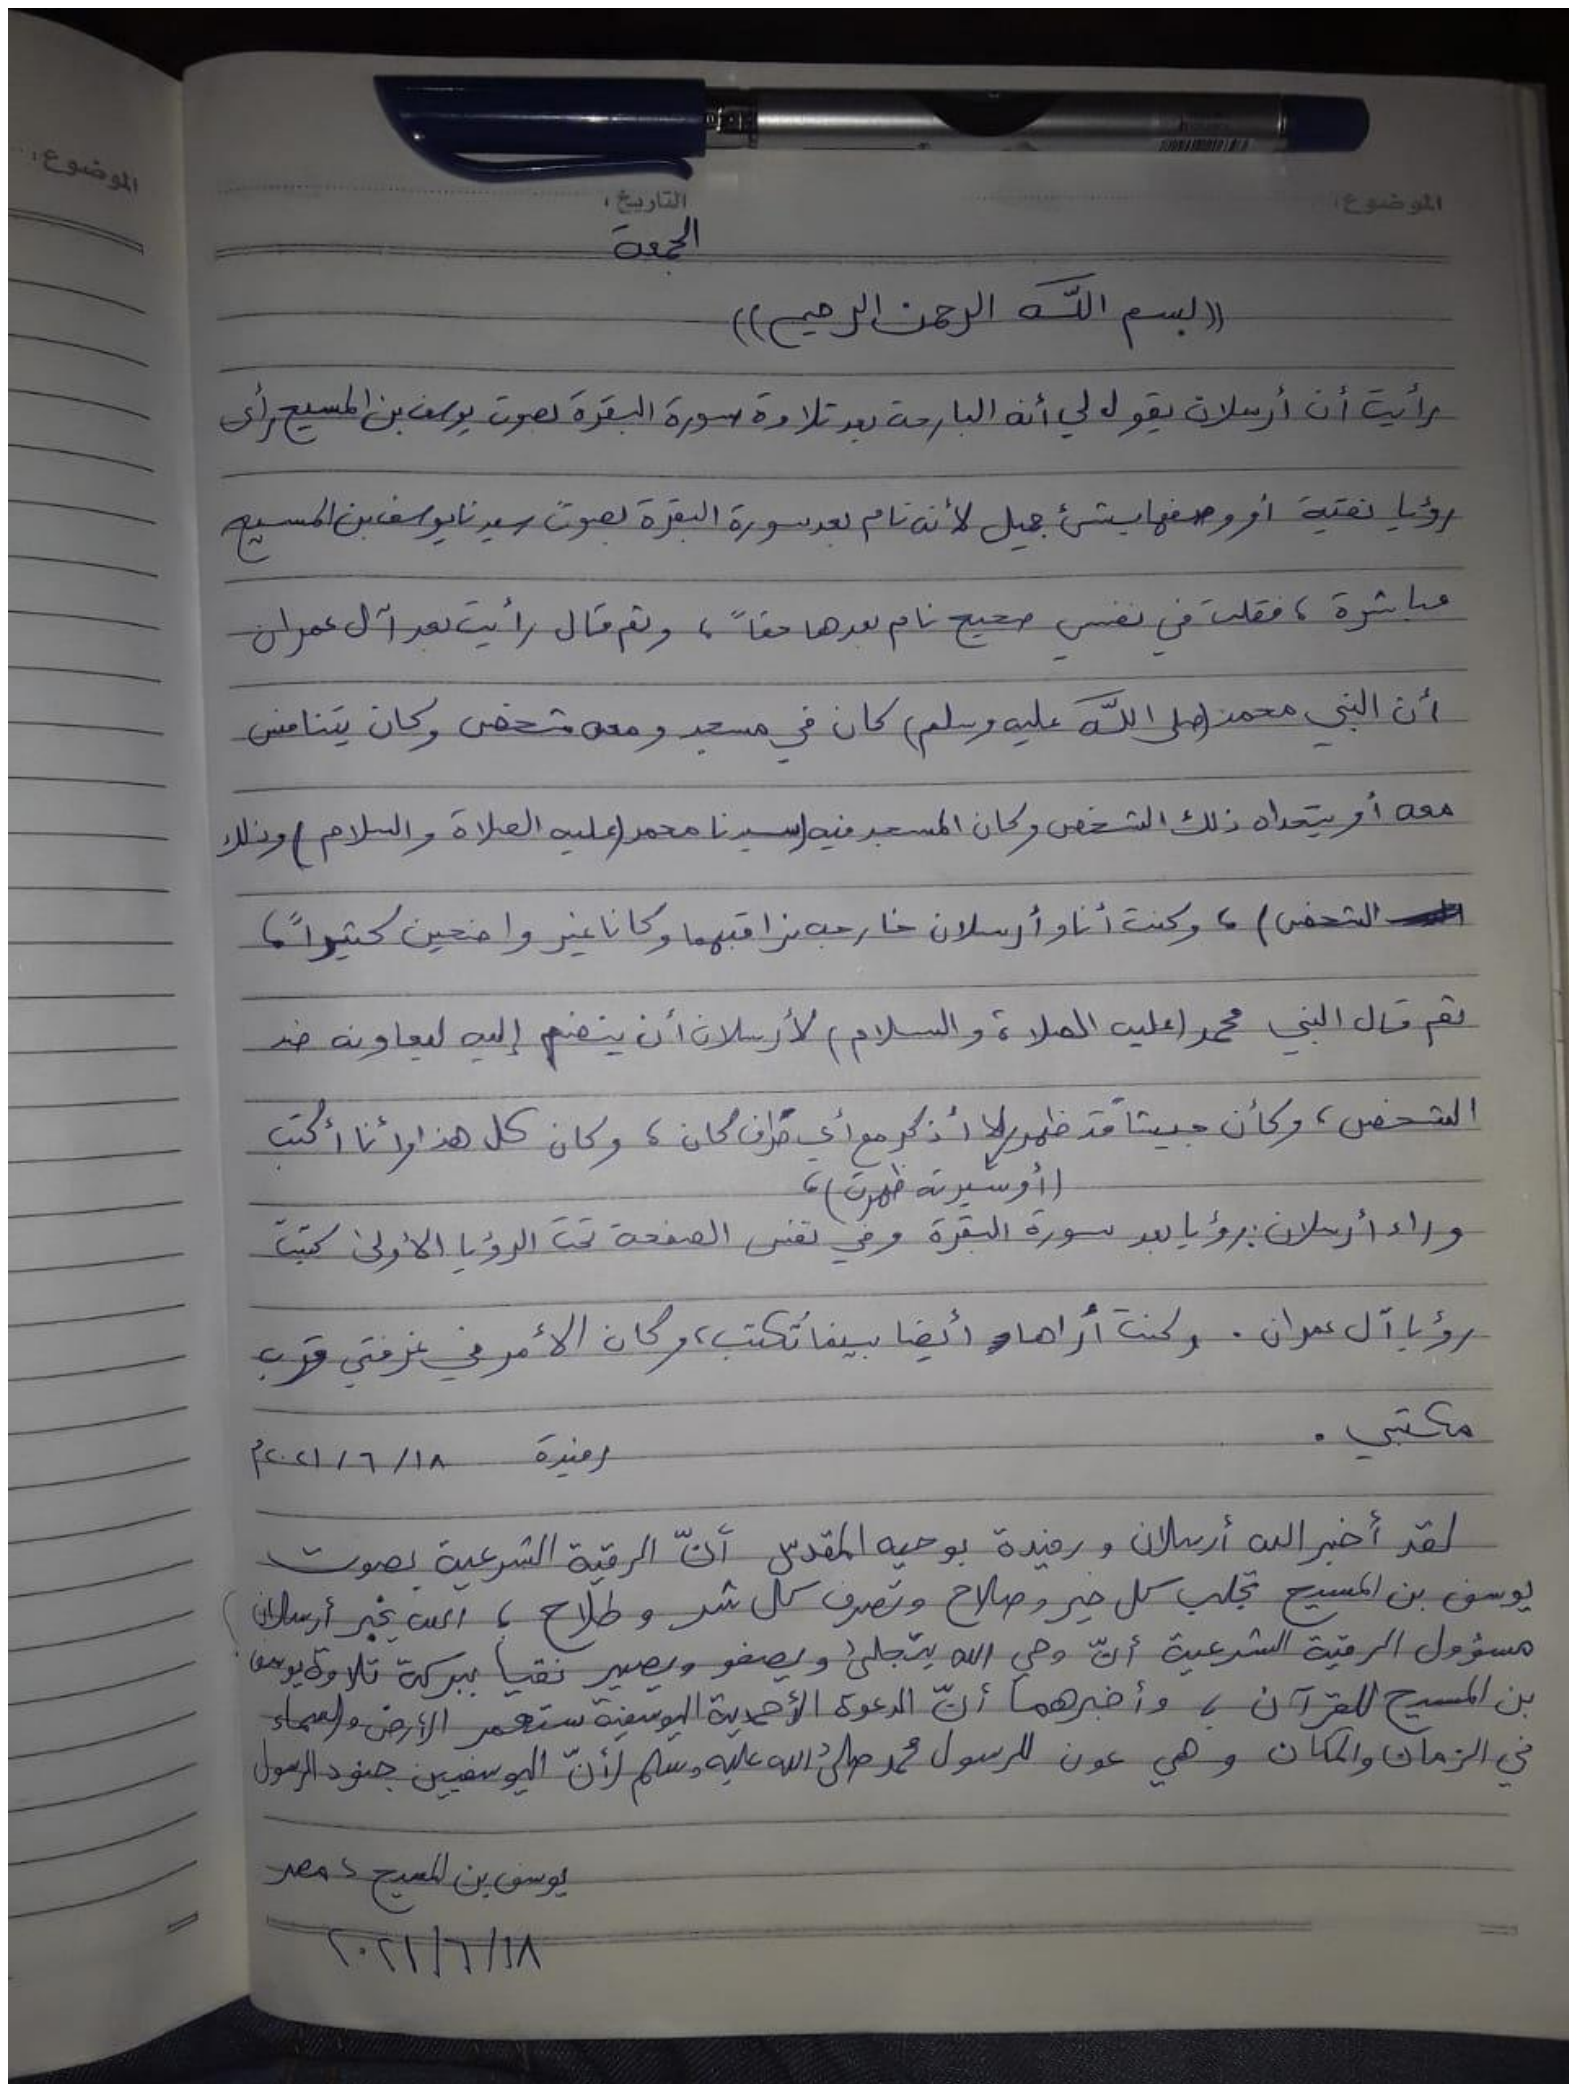 الموضوع:
الموضوع:
التاريخ:
الجمعة
((بسم اللّٰه الرحمن الرحيم))
رأيت أن أرسلان يقول لي أنه البارحة بعد تلاوة سورة البقرة بصوت يوسف بن المسيح رأى
رؤيا نقية أو وصفها بشئ جميل لأنه نام بعد سورة البقرة بصوت سيدنا يوسف بن المسيح
مباشرة ، فقلت في نفسي صحيح نام بعدها حقاً ، وثم قال رأيت بعد آل عمران
أن النبي محمد (صلى اللّٰه عليه وسلم) كان في مسجد ومعه شخص وكان يتنافس
معه أو يتحداه ذلك الشخص وكان المسجد فيه (سيدنا محمد (عليه الصلاة والسلام) وذلك
الشخص) ، وكنت أنا وأرسلان خارجه نراقبهما وكانا غير واضحين كثيراً ،
ثم قال النبي محمد (عليه الصلاة والسلام) لأرسلان أن ينضم إليه ليعاونه ضد
الشخص ، وكأن جيشاً قد ظهر لا أذكر مع أي طرف كان ، وكان كل هذا وأنا أكتب
(أو سيرته ظهرت) ،
وراء أرسلان رؤيا بعد سورة البقرة وفي نفس الصفحة تحت الرؤيا الأولى كتبت
رؤيا آل عمران . وكنت أراها أيضا بينما تُكتب ، وكان الأمر في غرفتي قرب
مكتبي .
رفيدة ١٨/٦/٢٠٢١م
لقد أخبر الله أرسلان و رفيدة بوحيه المقدس أنّ الرقية الشرعية بصوت
يوسف بن المسيح تجلب كل خير وصلاح وتصرف كل شر و طلاح ، الله يخبر أرسلان
مسؤول الرقية الشرعية أنّ وحي الله يتجلى ويصفو ويصير نقيا ببركة تلاوة يوسف
بن المسيح للقرآن ، وأخبرهما أنّ الدعوة الأحمدية اليوسفية ستعمر الأرض والسماء
في الزمان والمكان و هي عون للرسول محمد صلى الله عليه وسلم لأنّ اليوسفيين جنود الرسول
يوسف بن المسيح ، مصر
١٨/٦/٢٠٢١